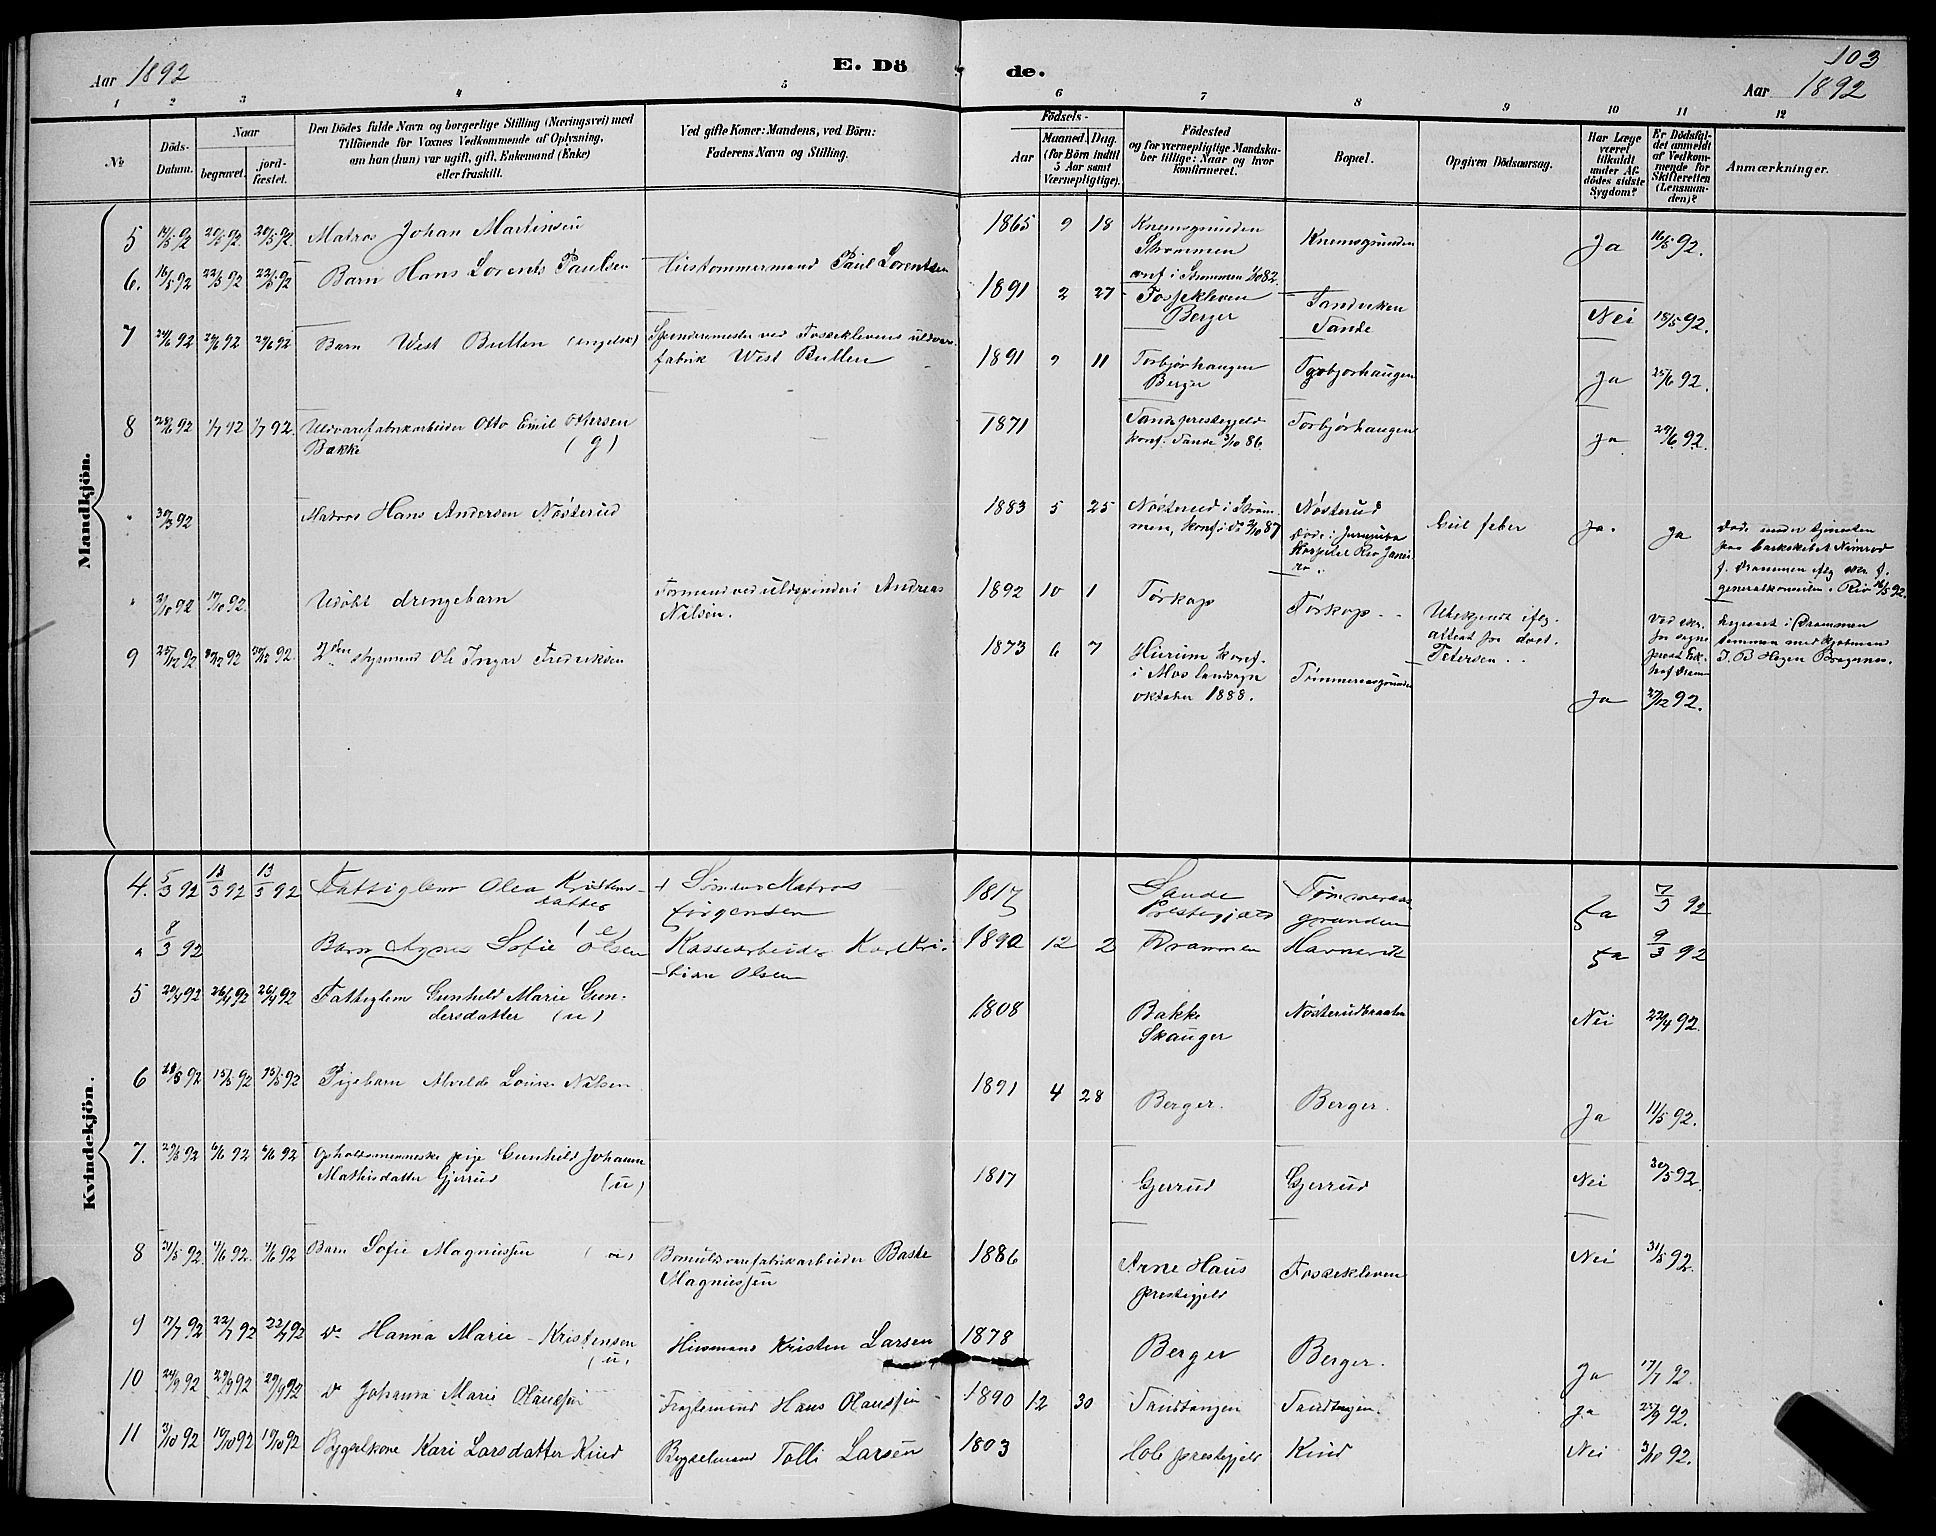 103
Aar 1892
E. Döde.
Aar 1892
1 2 3 4 5 6 7 8 9 10 11 12
No
Döds-Datum.
Naar
begravet.
jord-fæstet.
Den Dödes fulde Navn og borgerlige Stilling (Næringsvei) med
Tilföiende for Voxnes Vedkommende af Oplysning,
om han (hun) var ugift, gift, Enkemand (Enke)
eller fraskilt.
Ved gifte Koner: Mandens, ved Börn:
Faderens Navn og Stilling.
Födsels-
Aar
Maaned. Dag.
(for Börn indtil
5 Aar samt
Værnepligtige).
Födested
og for værnepligtige Mandska-
ber tillige: Naar og hvor
konfirmeret.
Bopæl.
Opgiven Dödsaarsag.
Har Læge
været
tilkaldt
under Af-
dödes sidste
Sygdom?
Er Dödsfal-
det anmeldt
af Vedkom-
mende for
Skifteretten
(Lensman-
den)?
Anmærkninger.
Mandkjön.
5 14/5 92 20/5 92 20/5 92 Matros Johan Martinsen 1865 9 18 Knemsgrunden
Strømmen
conf i Strømmen 82 Knemsgrunden Ja 16/5 92.
6. 16/5 92 22/5 92 22/5 92 Barn Hans Lorents Paulsen Hustømmermand Paul Lorentsen 1891 2 27 Fossekleven
Berger Sandviken
Sande Nei 18/5 92.
7 24/6 92 29/6 92 29/6 92 Barn West Butten (engelsk) Spinderimester ved Fosseklevens uldvare-
fabrik West Butten 1891 9 11 Torbjørhaugen
Berger Torbjørhaugen Ja 25/6 92.
8 28/6 92 1/7 92 1/7 92. Uldvarefabrikarbeider Otto Emil Ottersen
Bakke (g) 1871 Sande prestegjeld
konf. Sande 3/10 86. Torbjørhaugen Ja 29/6 92.
" 30/3 92 Matros Hans Andersen Nøsterud 1883 5 25 Nøsterud i Strøm-
men, konf i do 2/10 87 Nøsterud
døde i Jurujuba
Hospital Rio Janei-
ro. Gul feber Ja. Ja Døde under tjenesten
paa barkskibet Nimrod
f. Drammen iflg skr. f.
generalkonsulen i Rio 16/5 92.
" 3/10 92 17/10 92. Udøbt drengebarn Formand ved uldspinderi Andreas
Nilsen. 1892 10 1 Tørkop Tørkop Ubekjendt iflg.
attest fra doct.
Petersen. Ved skr.
fra sogne
prest Eck-
hof Dram
9 25/12 92 30/12 92 30/12 92. 2den styrmand Ole Ingar Fredriksen 1873 6 7 Hurum konf.
i Mos landsogn
oktober 1888. Tømmeraasgrunden Ja 27/12 92. begravet i Drammen
sammen med kjøbmand
J. B Hegen Bragnes.
Kvindekjön.
4. 5/3 92 13/3 92 13/3 92 Fattiglem Olea Kristens-
datter (e) + Sømand Matros
Jørgensen 1817 Sande
Prestegjeld Tømmeraas
grunden Ja 7/3 92
" 8/3 92 Barn Agnes Sofie Olsen Kassearbeider Karl Kri-
stian Olsen 1890 12 2 Drammen Havnevik Ja 9/3 92
5 20/4 92 26/4 92 26/4 92 Fattiglem Gunhild Marie Gun-
dersdatter (u) 1808 Bakke
Skauger Nøsterudbraaten Nei 22/4 92.
6 10/5 92 15/5 92 15/5 92 Pigebarn Alvilde Louise Nilsen 1891 4 28 Berger. Berger. Ja 11/5 92.
7. 29/5 92 6/6 92 6/6 92 Opholdsmenneske pige Gunhild Johanne
Mathisdatter Gjerrud (u) 1817 Gjerrud Gjerrud Nei 30/5 92.
8 31/5 92. 4/6 92. 4/6 92 Barn Sofie Magnussen (u) Bomuldsvarefabrikarbeider Baste
Magnussen 1886 Arne Haus
prestegjeld Fossekleven Nei 31/5 92.
9 17/7 92 22/7 92 22/7 92 do Hanna Marie Kristensen
(u) Husmand Kristen Larsen 1878 Berger Berger. Ja 17/7 92.
10 24/9 92 29/9 92 29/9 92 do Johanna Marie Olaussen Fragtemand Hans Olaussen 1890 12 30 Sandtangen Sandtangen. Ja 25/9 92.
11 3/10 92 10/10 92 10/10 92 Bygselkone Kari Larsdatter Kind Bygselmand Tolli Larsen 1803 Hole prestegjeld Kind Nei 3/10 92.